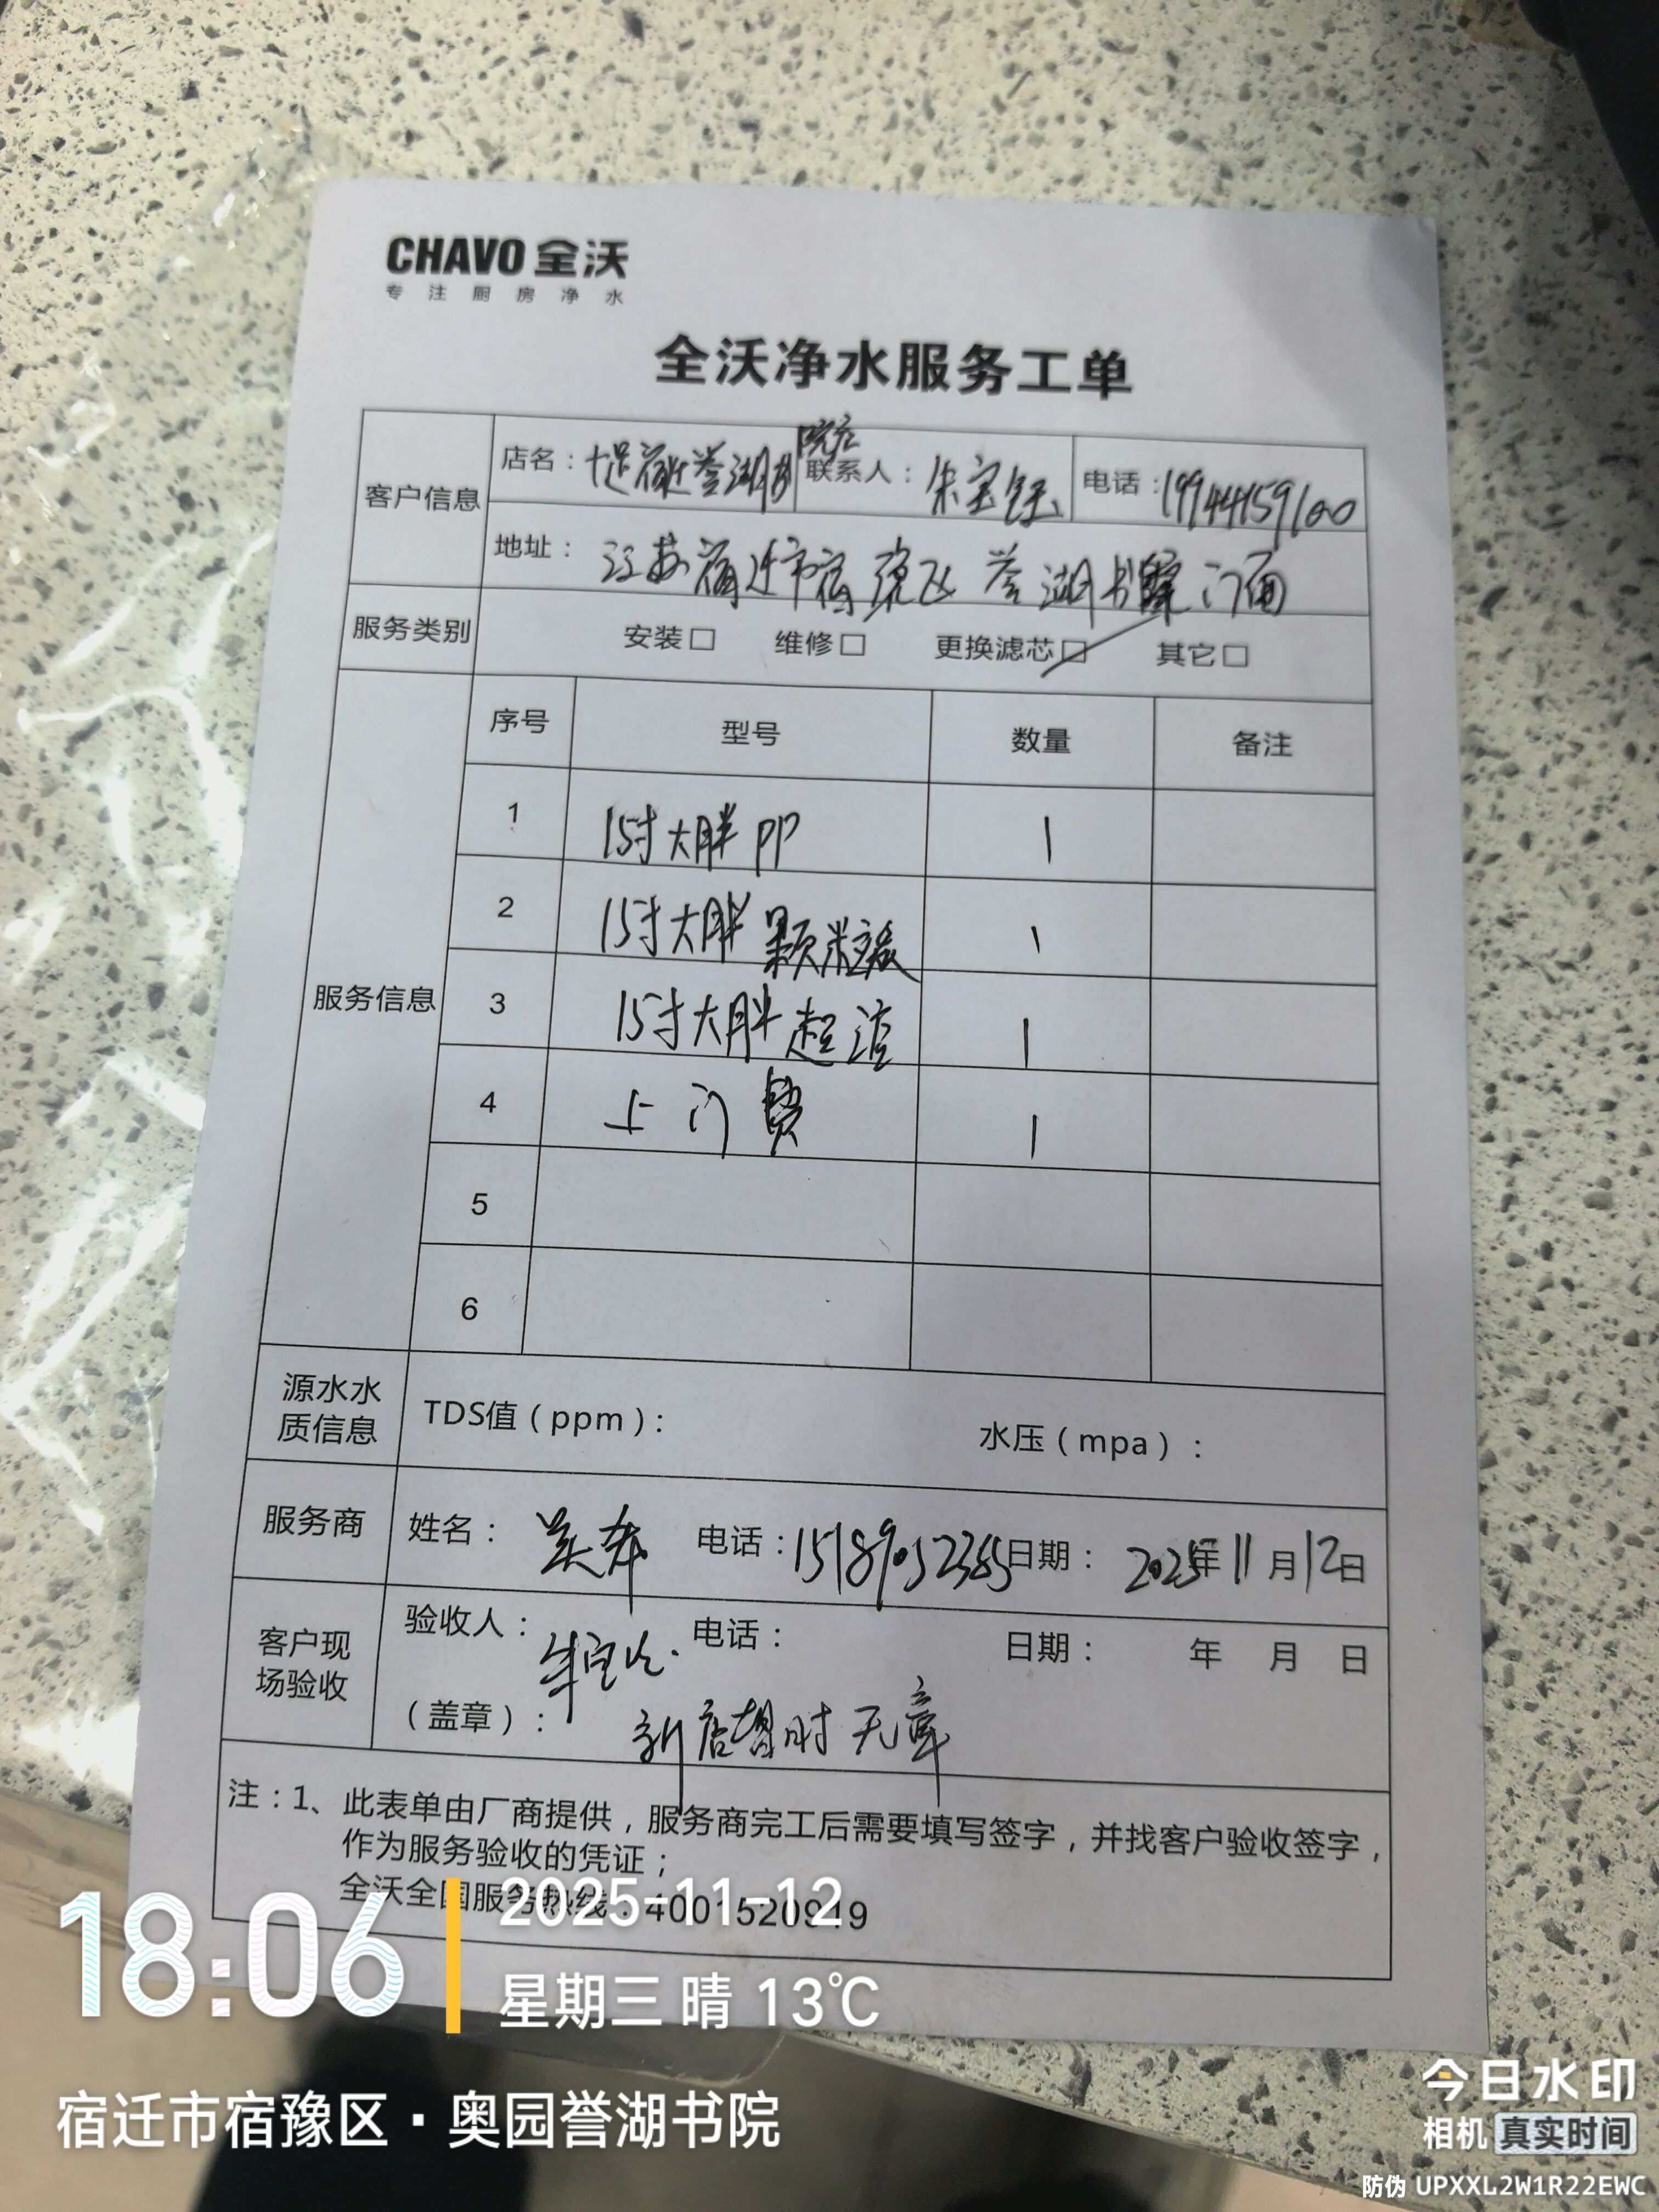 CHAVO 全沃
专注厨房净水
全沃净水服务工单
客户信息 店名：十足宿迁誉湖书院店 联系人：朱宝钰 电话：19944159100
地址：江苏宿迁市宿豫区誉湖书院门面
服务类别 安装□ 维修□ 更换滤芯□ 其它□
服务信息 序号 型号 数量 备注
1 15寸大胖PP 1
2 15寸大胖颗粒炭 1
3 15寸大胖超滤 1
4 上门费 1
5
6
源水水质信息 TDS值（ppm）： 水压（mpa）：
服务商 姓名： 电话：15189052365 日期：2025年11月12日
客户现场验收 验收人： 电话： 日期： 年 月 日
（盖章）：新店暂时无章
注：1、此表单由厂商提供，服务商完工后需要填写签字，并找客户验收签字，
作为服务验收的凭证；
全沃全国服务热线：4001520919
18:06
2025-11-12
星期三 晴 13℃
宿迁市宿豫区·奥园誉湖书院
今日水印
相机 真实时间
防伪 UPXXL2W1R22EWC